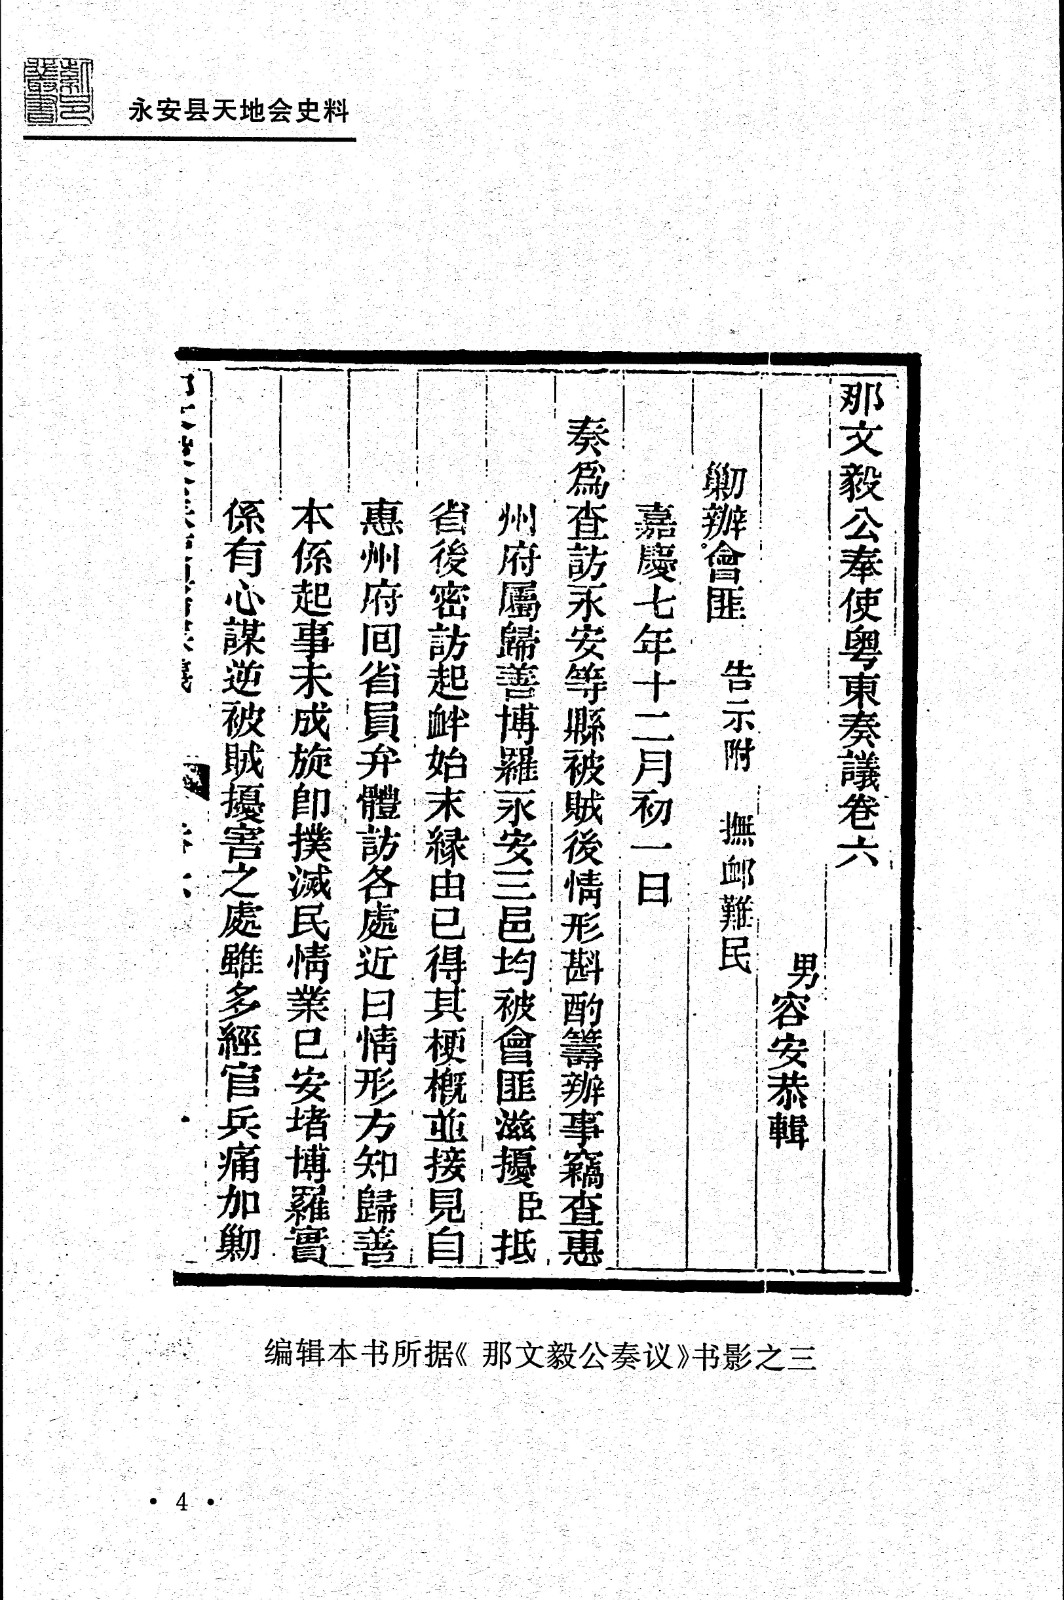 永安县天地会史料
那文毅公奉使粵東奏議卷六
男容安恭輯
勦辦會匪 告示附 撫卹難民
嘉慶七年十二月初一日
奏爲查訪永安等縣被賊後情形斟酌籌辦事竊查惠
州府屬歸善博羅永安三邑均被會匪滋擾臣抵
省後密訪起衅始末緣由已得其梗概並接見自
惠州府回省員弁體訪各處近日情形方知歸善
本係起事未成旋卽撲滅民情業已安堵博羅實
係有心謀逆被賊擾害之處雖多經官兵痛加勦
编辑本书所据《那文毅公奏议》书影之三
· 4 ·